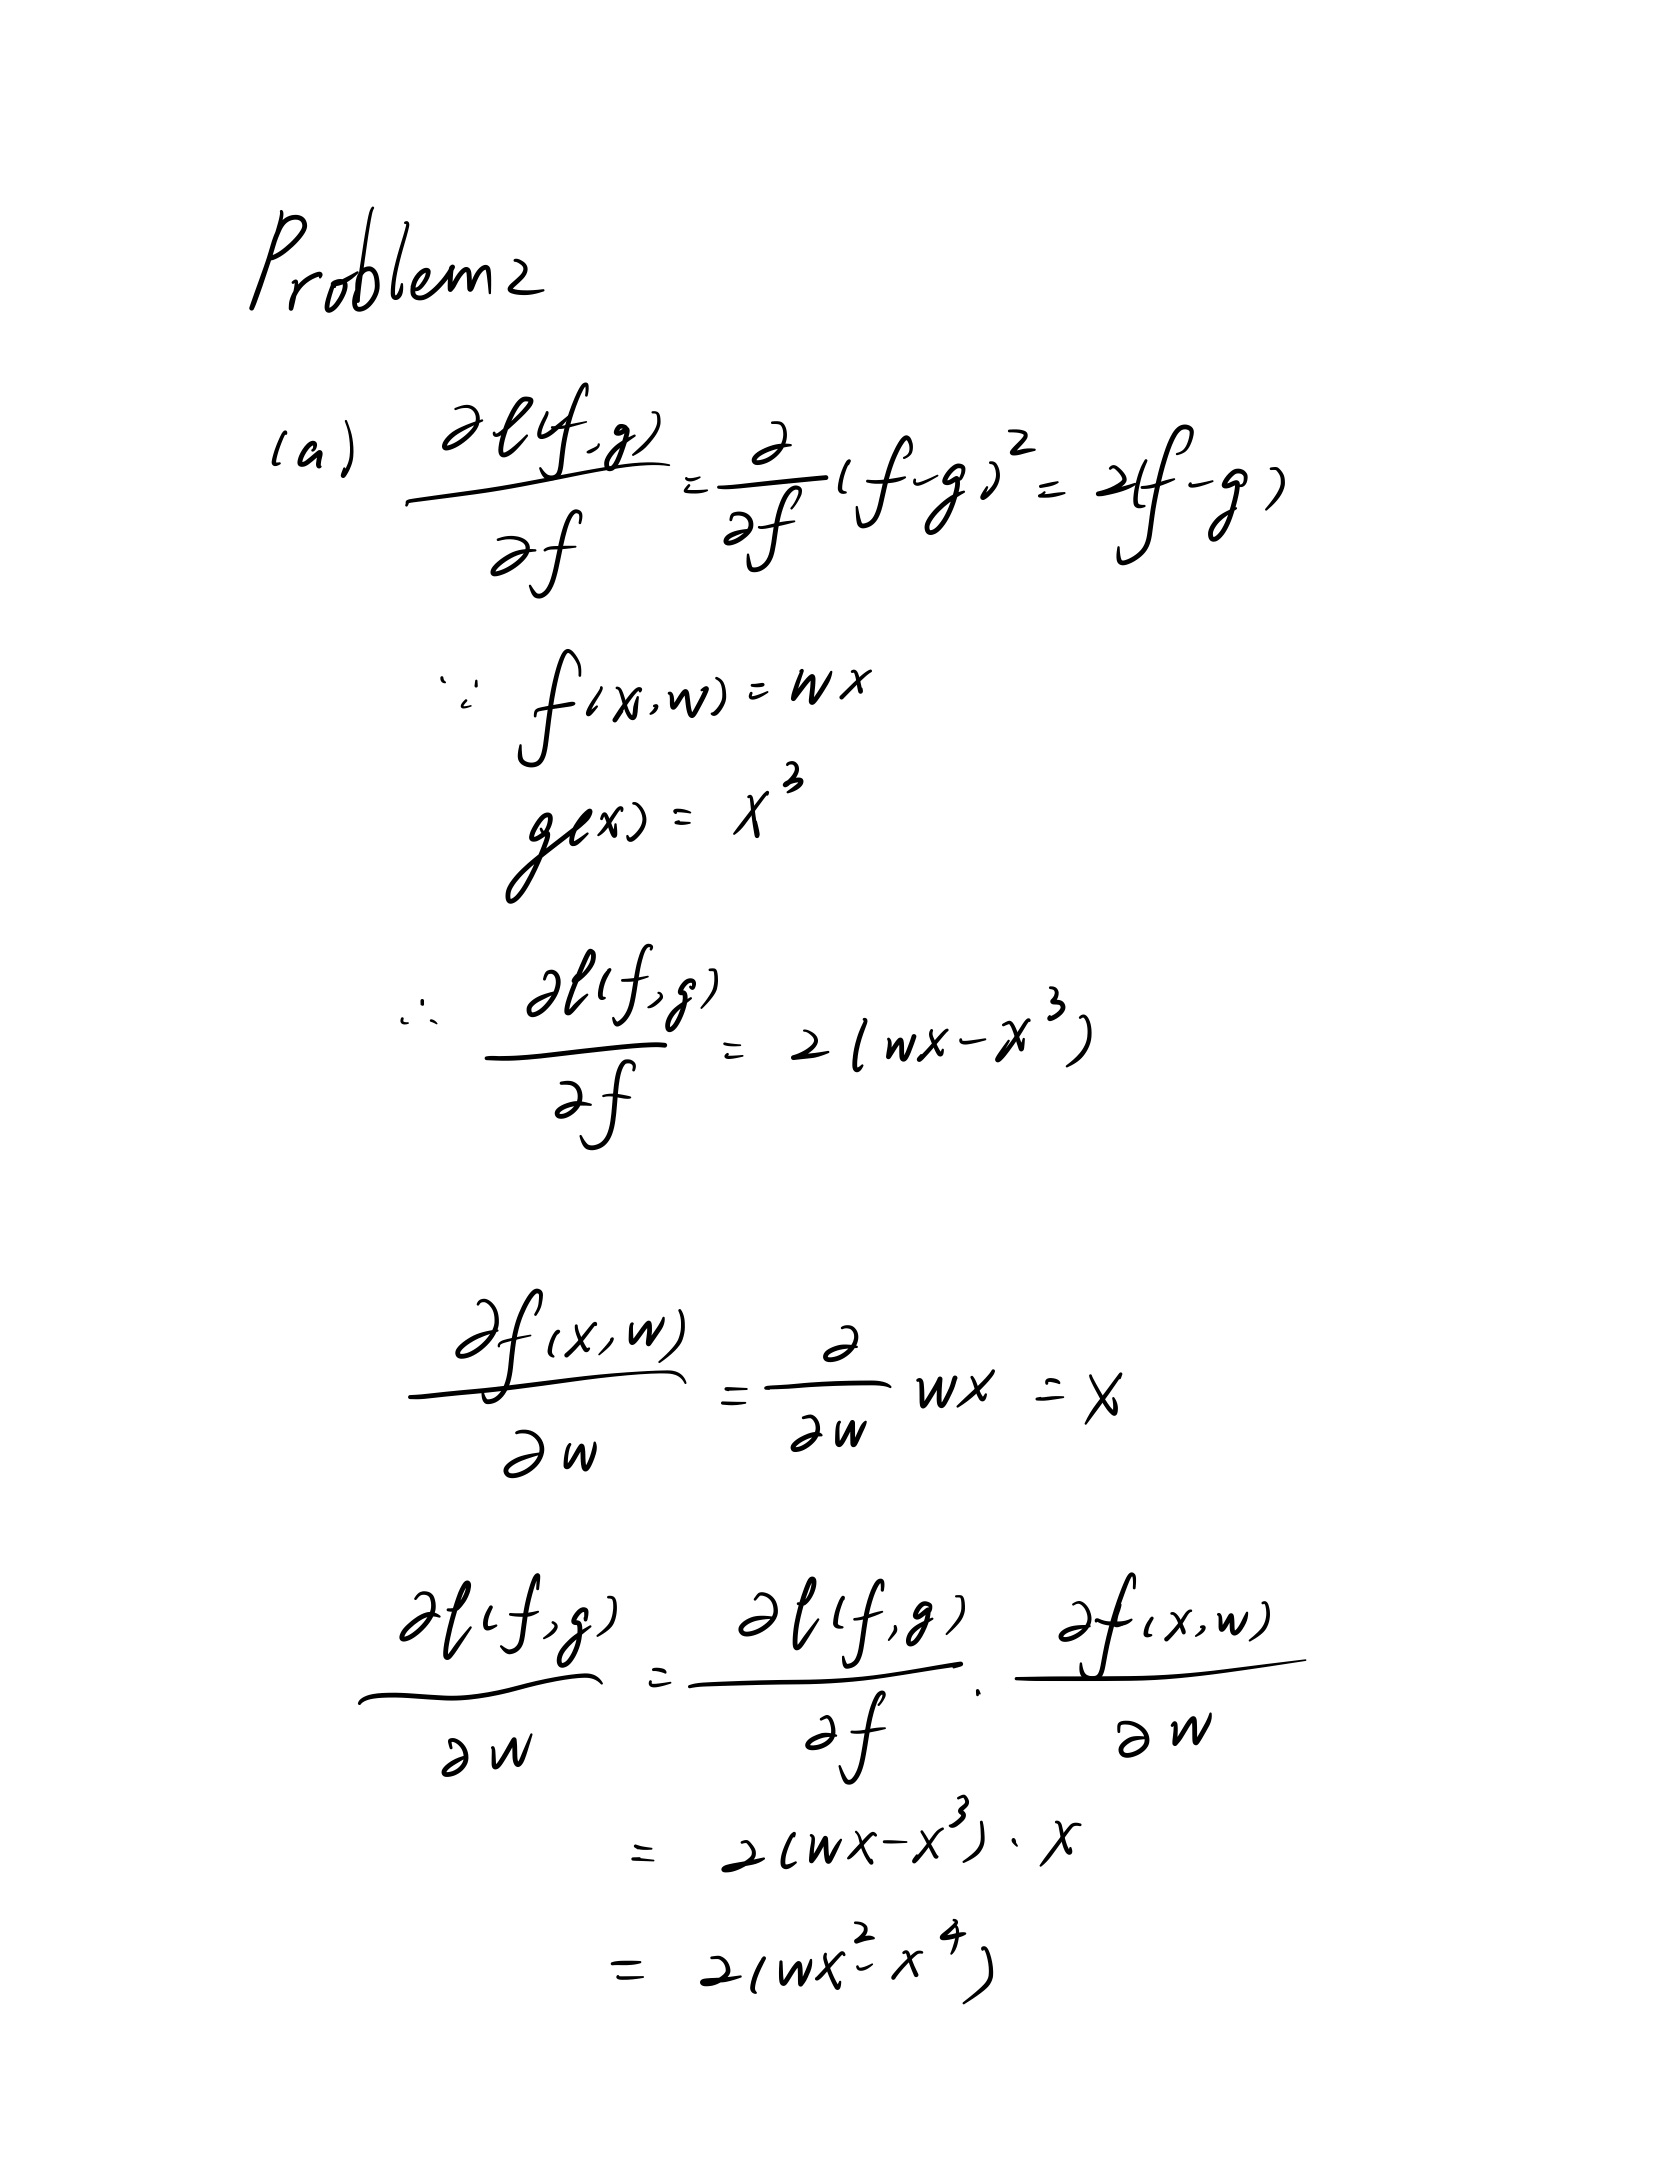 Problem 2
(a) ∂ℓ(f,g)/∂f = ∂/∂f (f-g)² = 2(f-g)
∵ f(x,w) = wx
g(x) = x³
∴ ∂ℓ(f,g)/∂f = 2(wx-x³)
∂f(x,w)/∂w = ∂/∂w wx = x
∂ℓ(f,g)/∂w = ∂ℓ(f,g)/∂f · ∂f(x,w)/∂w
= 2(wx-x³)·x
= 2(wx²-x⁴)